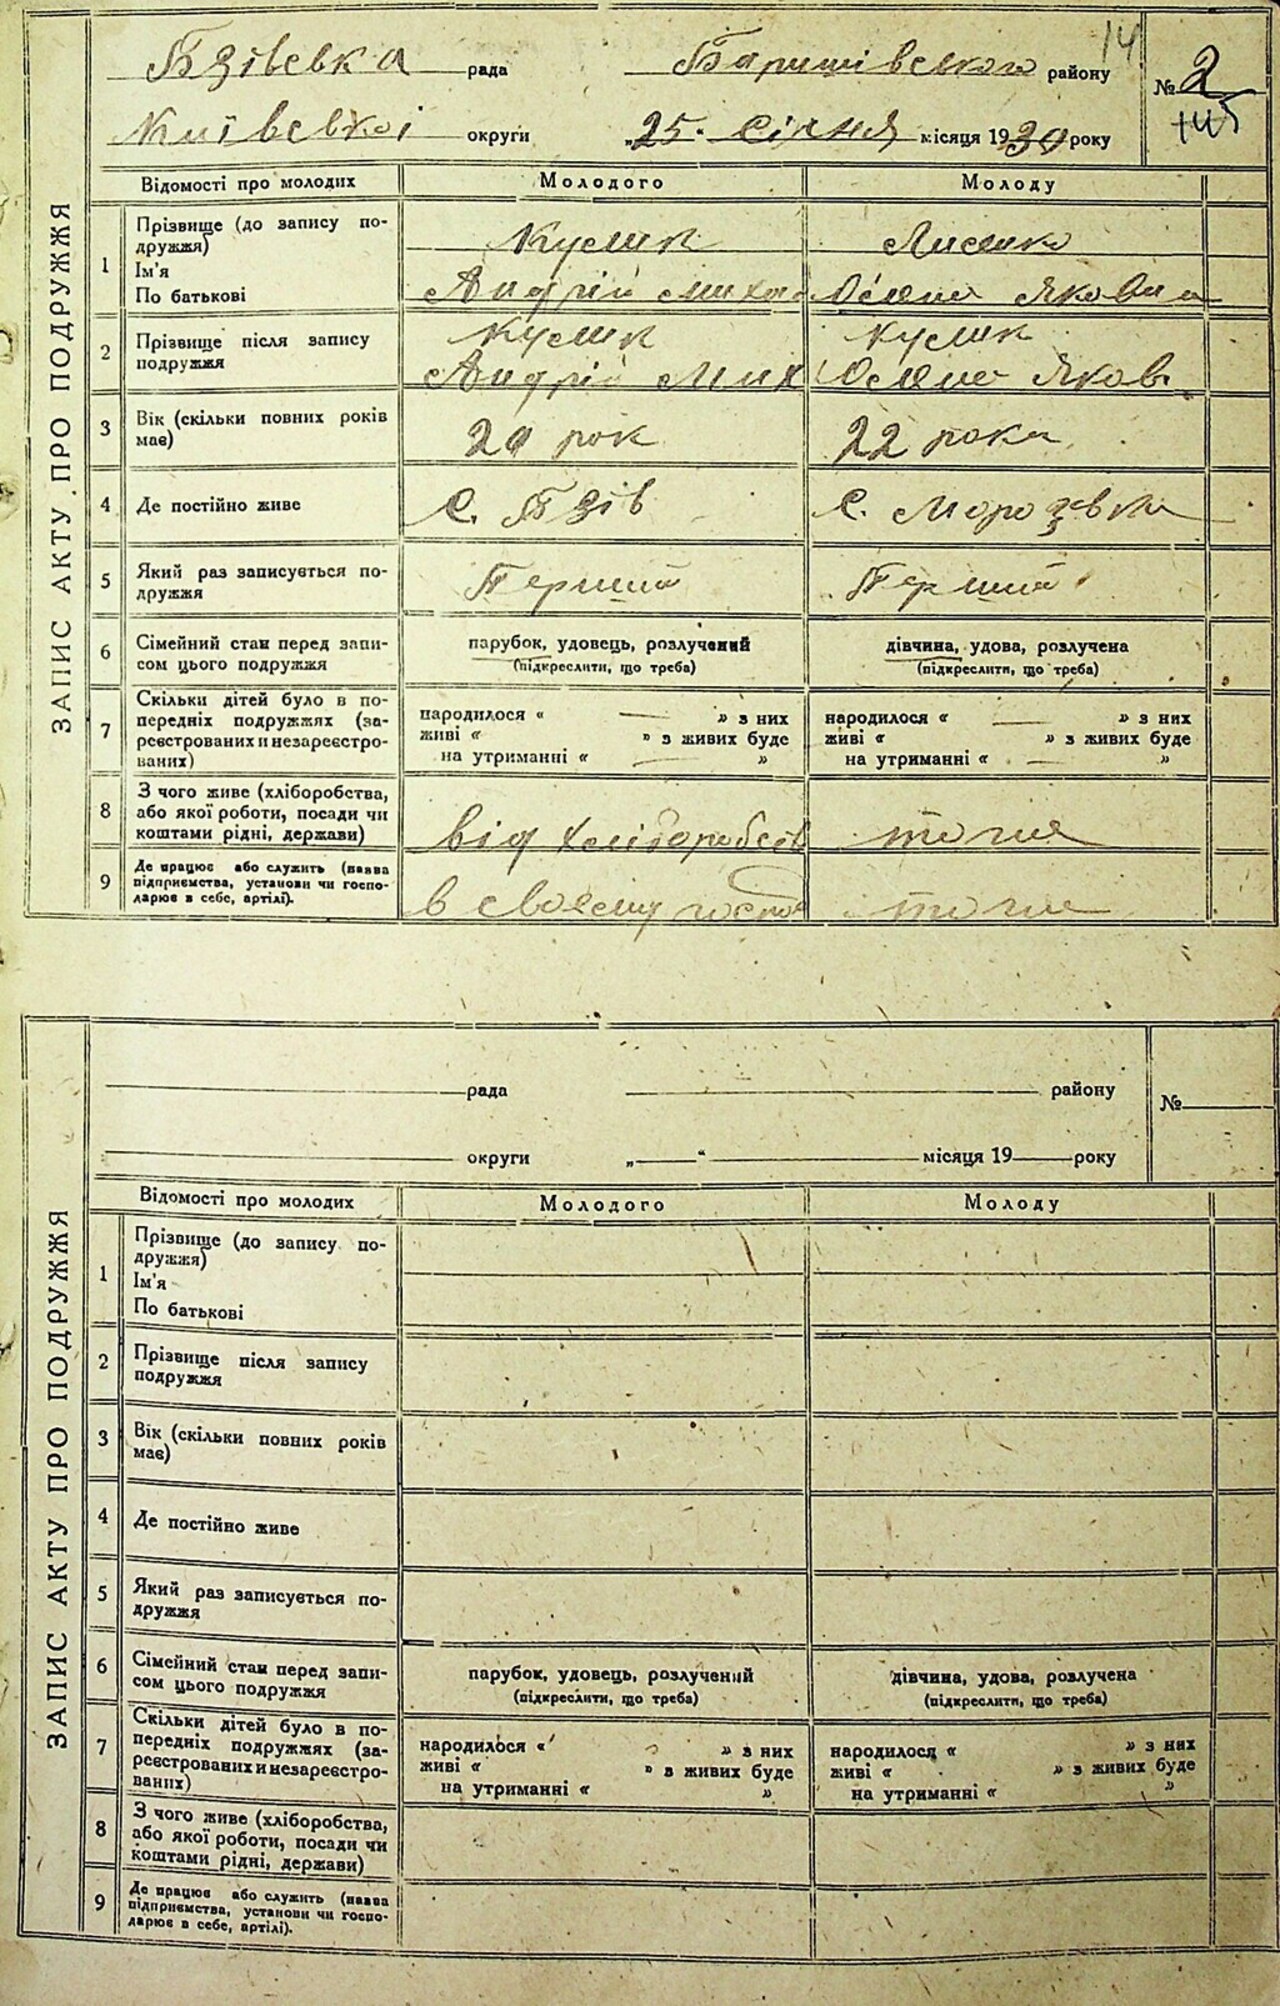 14
Бзівська рада Баришівського району № 2
Київської округи „25" Січня місяця 1930 року
ЗАПИС АКТУ ПРО ПОДРУЖЖЯ
Відомості про молодих Молодого Молоду
1 Прізвище (до запису по-
дружжя) Куслик Лисенко
Ім'я
По батькові Андрій Миха Олена Яковл
2 Прізвище після запису Куслик Куслик
подружжя Андрій Мих Олена Яков
3 Вік (скільки повних років
має) рок 22 роки
4 Де постійно живе С. Бзів С. Морозівка
5 Який раз записується по-
дружжя Перший Перший
6 Сімейний стан перед запи-
сом цього подружжя
парубок, удовець, розлучений дівчина, удова, розлучена
(підкреслити, що треба) (підкреслити, що треба)
7 Скільки дітей було в по-
передніх подружжях (за-
реєстрованих и незареєстро-
ваних)
народилося « — » з них народилося « — » з них
живі « » з живих буде живі « » з живих буде
на утриманні « — » на утриманні « — »
8 З чого живе (хліборобства,
або якої роботи, посади чи
коштами рідні, держави) від хліборобств тоже
9 Де працює або служить (назва
підприємства, установи чи госпо-
дарює в себе, артілі). в своєму госпо тоже
рада району №
округи „ " місяця 19 року
ЗАПИС АКТУ ПРО ПОДРУЖЖЯ
Відомості про молодих Молодого Молоду
1 Прізвище (до запису по-
дружжя)
Ім'я
По батькові
2 Прізвище після запису
подружжя
3 Вік (скільки повних років
має)
4 Де постійно живе
5 Який раз записується по-
дружжя
6 Сімейний стан перед запи-
сом цього подружжя
парубок, удовець, розлучений дівчина, удова, розлучена
(підкреслити, що треба) (підкреслити, що треба)
7 Скільки дітей було в по-
передніх подружжях (за-
реєстрованих и незареєстро-
ваних)
народилося « » з них народилося « » з них
живі « » з живих буде живі « » з живих буде
на утриманні « » на утриманні « »
8 З чого живе (хліборобства,
або якої роботи, посади чи
коштами рідні, держави)
9 Де працює або служить (назва
підприємства, установи чи госпо-
дарює в себе, артілі).